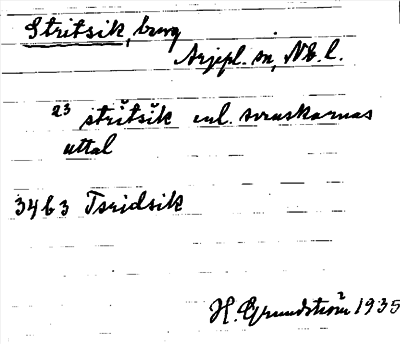 Stritsik, berg
Arjepl. sn, Nb. l.
23 stritsik enl. svenskarnas
uttal
34 b 3 Tsridsik
H. Grundström 1935